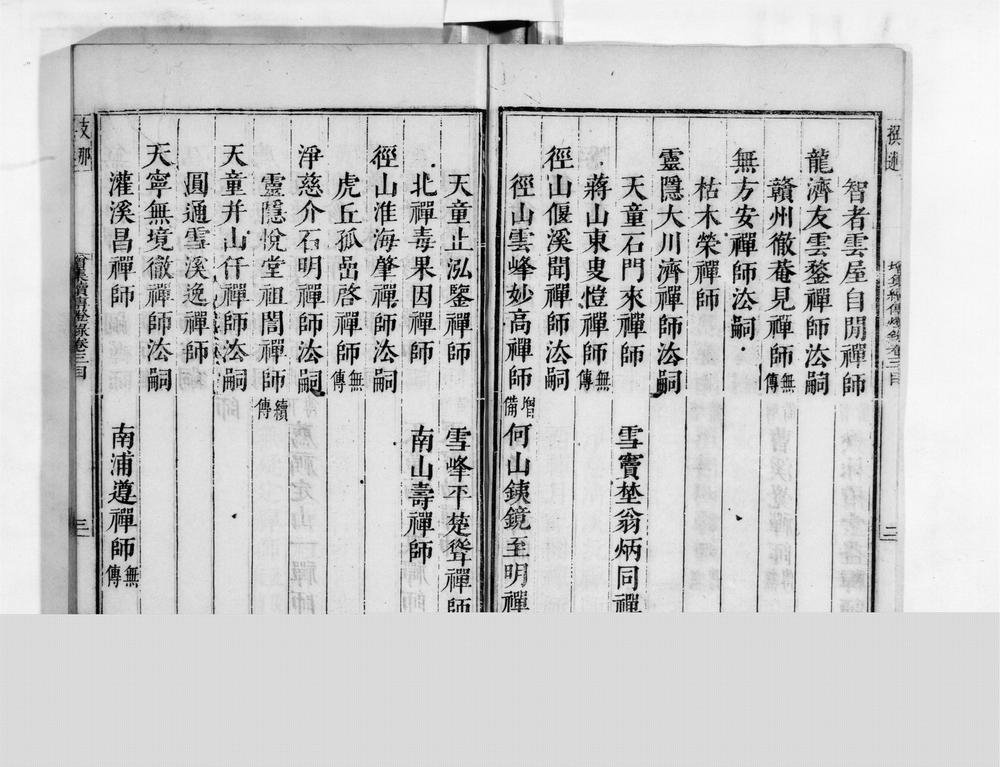 智者雲屋自閒禪師
龍濟友雲鍪禪師法嗣
贛州徹菴見禪師無傳
無方安禪師法嗣
枯木榮禪師
靈隱大川濟禪師法嗣
天童石門來禪師 雪竇埜翁炳同禪
蔣山東叟愷禪師無傳
徑山偃溪聞禪師法嗣
徑山雲峰妙高禪師增備 何山鐵鏡至明禪
天童止泓鑒禪師 雪峰平楚聳禪師
北禪毒果因禪師 南山壽禪師
徑山淮海肇禪師法嗣
虎丘孤嵒啓禪師無傳
淨慈介石明禪師法嗣
靈隱悅堂祖誾禪師續傳
天童弁山仟禪師法嗣
圓通雪溪逸禪師
天寧無境徹禪師法嗣
灌溪昌禪師 南浦遵禪師無傳
支那
增集續傳燈錄卷三目
三